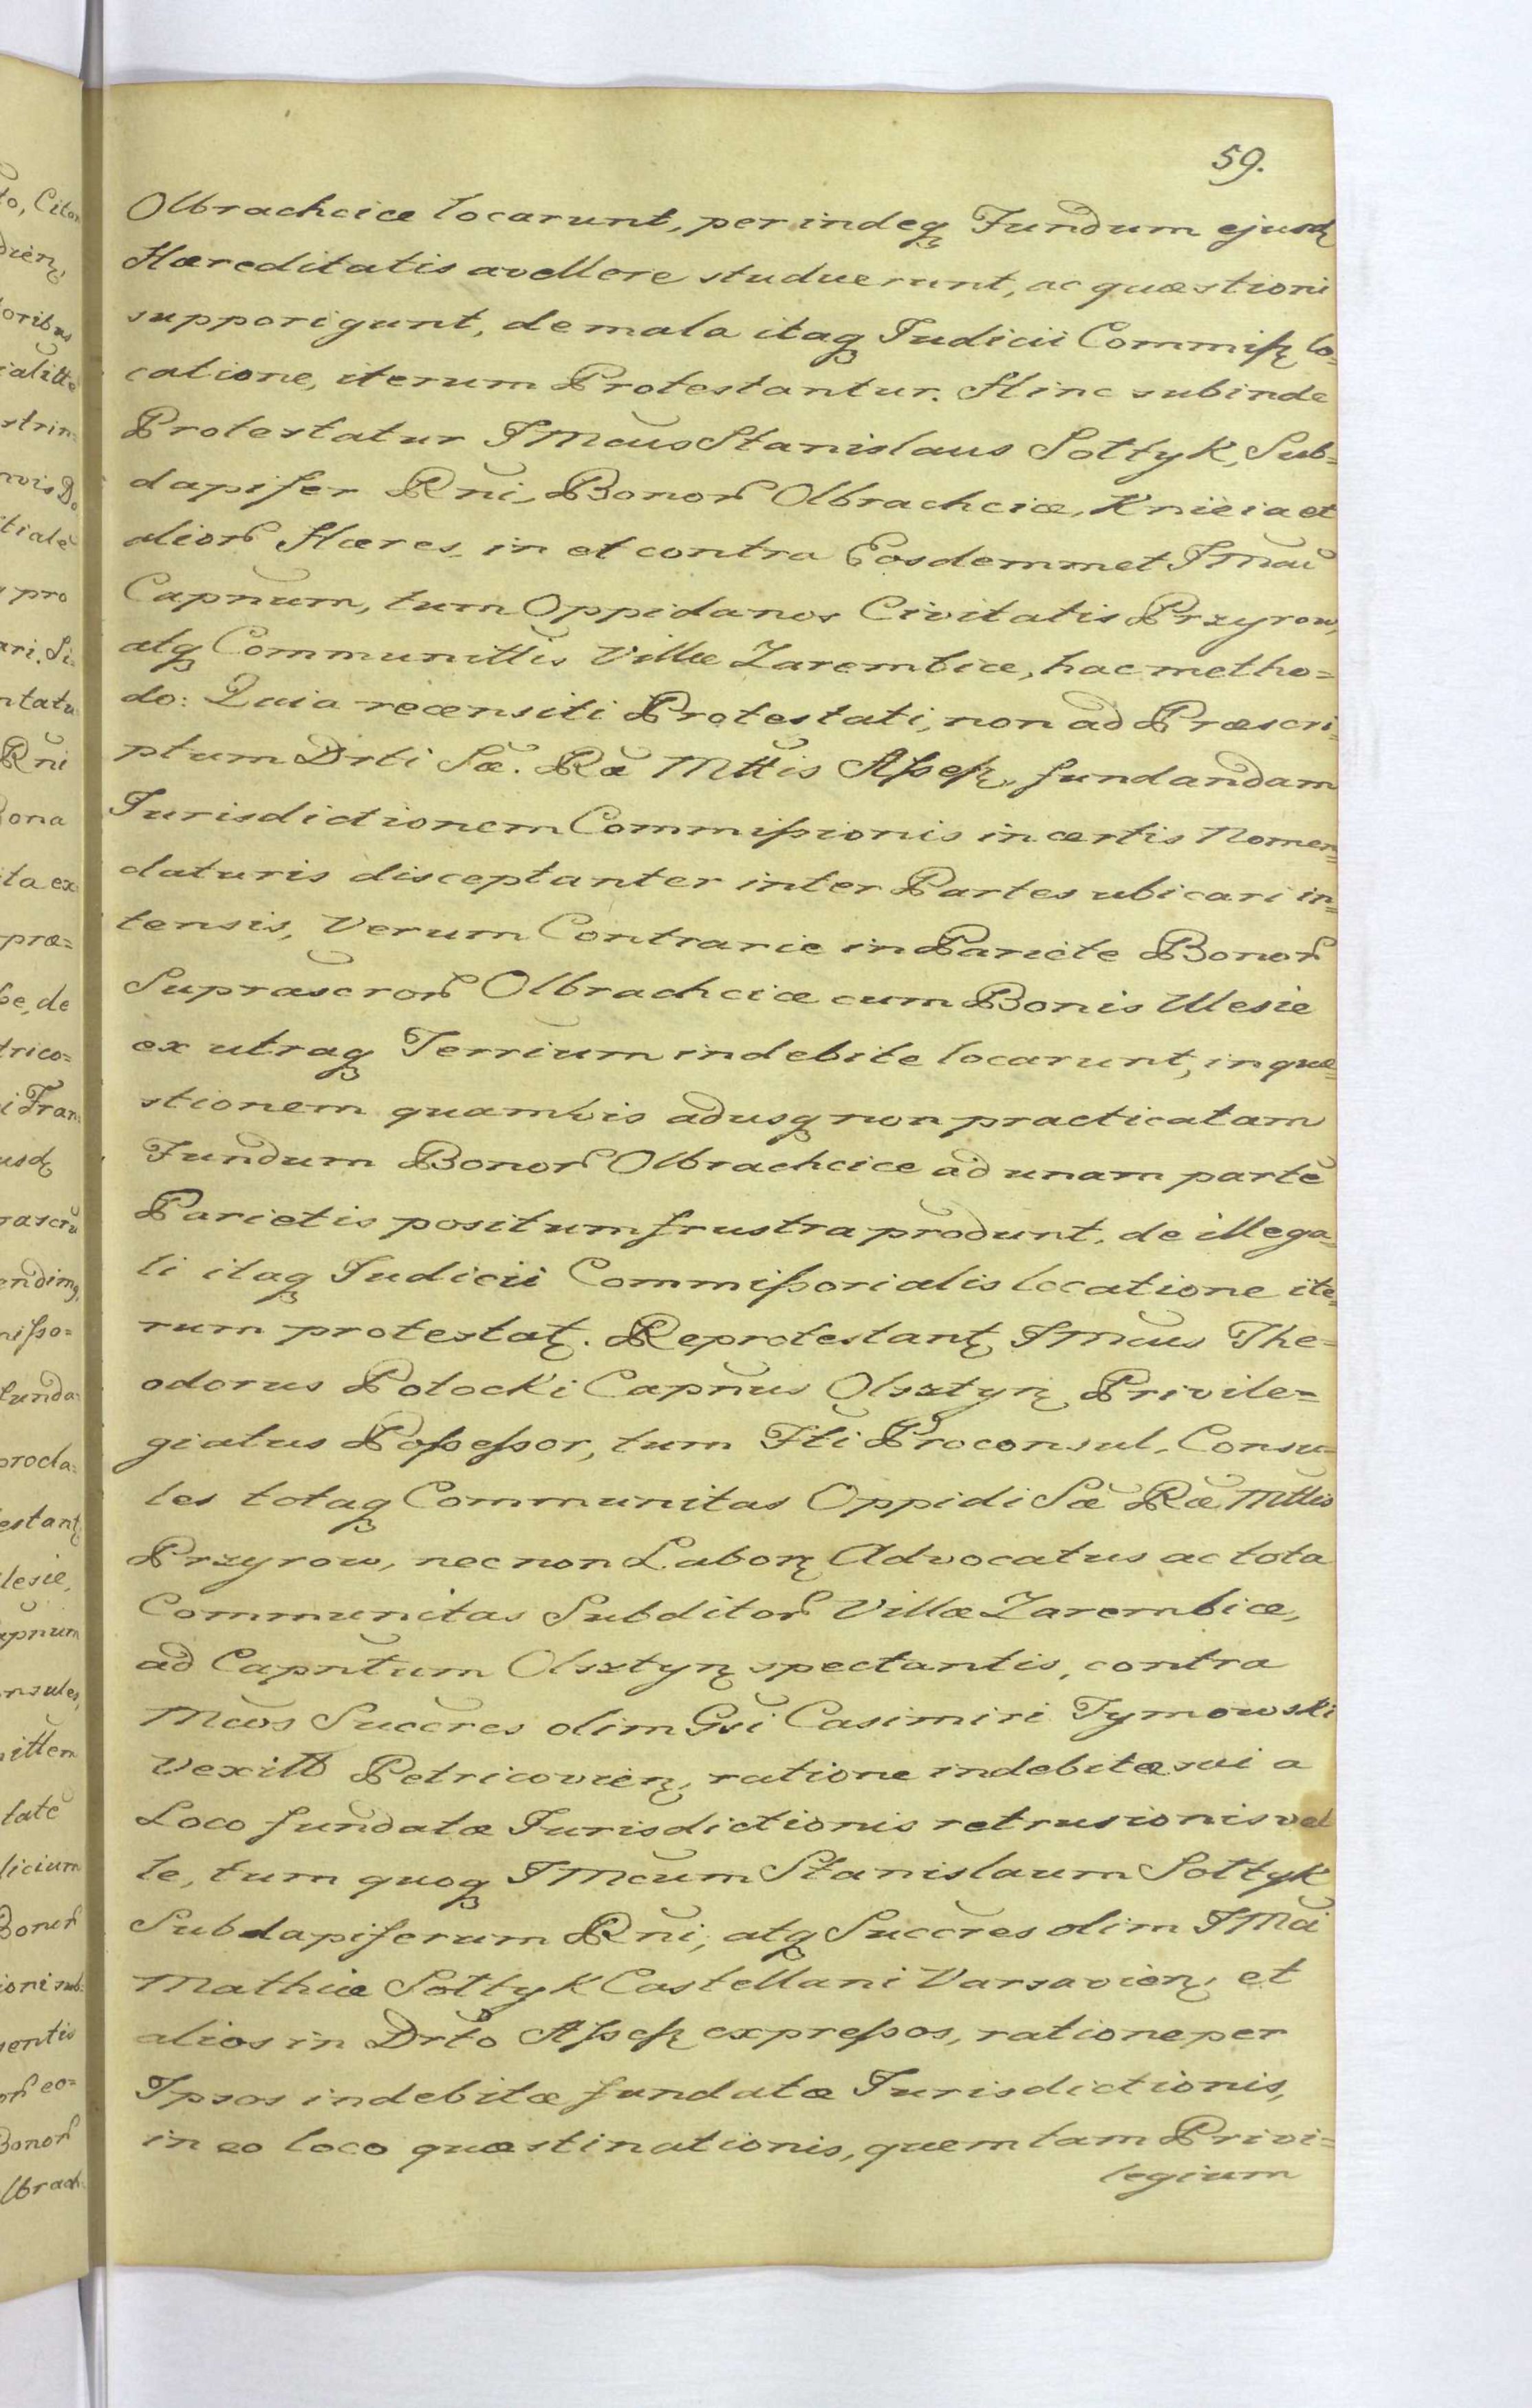 59.
Olbrachcice locarunt, perindeq̨ Fundum ejusdȩ
Hæreditatis avellere studuerunt, ac quæstioni
supporigunt, de mala itaq̨ Judicii Commiſsȩ lo=
catione, iterum Protestantur. Hinc subinde
Protestatur JMcus Stanislaus Sołtyk, Sub=
dapifer Rñi, Bonor Olbrachcice, Knieia et
alior Hæres, in et contra Eosdemmet JMcũ
Capñum, tum Oppidanos Civitatis Przyrow,
atq̨ Communittis Villæ Zarembice, hac metho=
do: Quia recensiti Protestati, non ad Præscri=
ptum Drti Sæ. Ræ Mttis Aſseſsȩ, fundandam
Jurisdictionem Commiſsionis in certis Nomen=
claturis disceptanter inter Partes ubicari in=
tensis, Verum Contrarie in Pariete Bonor
Suprascror Olbrachcice cum Bonis Ulesie
ex utraq̨ Terrium indebite locarunt, in quæ=
stionem quamvis adusq̨ non practicatam
Fundum Bonor Olbrachcice ad unam partẽ
Parietis positum frustra produnt, de illega=
li itaq̨ Judicii Commiſsorialis locatione ite=
rum protestatȩ. Reprotestantȩ JMcus The=
odorus Potocki Capñus Olsztynȩ Privile=
giatus Poſseſsor, tum Fti Proconsul, Consu=
les totaq̨ Communitas Oppidi Sæ Ræ Mttis
Przyrow, nec non Laborȩ Advocatus ac tota
Communitas Subditor Villæ Zarembice,
ad Capñtum Olsztynȩ spectantis, contra
Mcos Succres olim Gsi Casimiri Tymowski
Vexill Petricovienȩ, ratione indebitæ sui a
Loco fundatæ Jurisdictionis retrusionis vel
le, tum quoq̨ JMcum Stanislaum Sołtyk
Subdapiferum Rñi, atq̨ Succres olim JMci
Mathiæ Sołtyk Castellani Varsavienȩ, et
alios in Drto Aſseſsȩ expreſsos, ratione per
Ipsos indebitæ fundatæ Jurisdictionis,
in eo loco quæstinationis, quem tam Privi=
legium